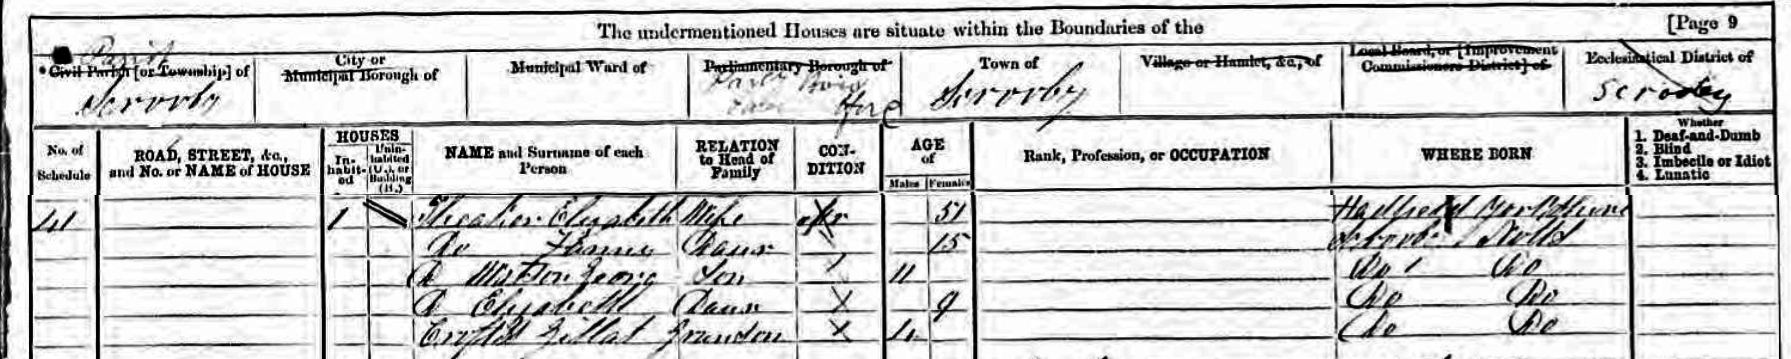 The undermentioned Houses are situate within the Boundaries of the [Page 9
Parish
Civil Parish [or Township] of
City or Municipal Borough of
Municipal Ward of
Parliamentary Borough of
Town of
Village or Hamlet, &c., of
Local Board, or [Improvement Commissioners District] of
Ecclesiastical District of
Scrooby Scrooby Scrooby
No. of Schedule
ROAD, STREET, &c., and No. or NAME of HOUSE
HOUSES
In-habit-ed
Unin-habited (U.), or Building (B.)
NAME and Surname of each Person
RELATION to Head of Family
CON-DITION
AGE of
Males Females
Rank, Profession, or OCCUPATION
WHERE BORN
Whether
1. Deaf-and-Dumb
2. Blind
3. Imbecile or Idiot
4. Lunatic
41 1 Elizabeth Wife 51 Hadfield Yorkshire
Do Fanny Daur 15 Scrooby Notts
Do George Son 11 Do Do
Do Elizabeth Daur 9 Do Do
Gillat Grandson Do Do